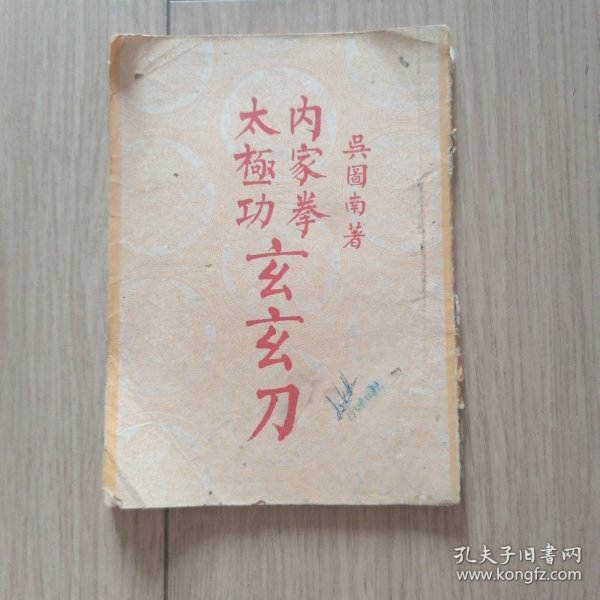 吳圖南著
內家拳
太極功
玄玄刀
孔夫子旧书网
www.kongfz.com